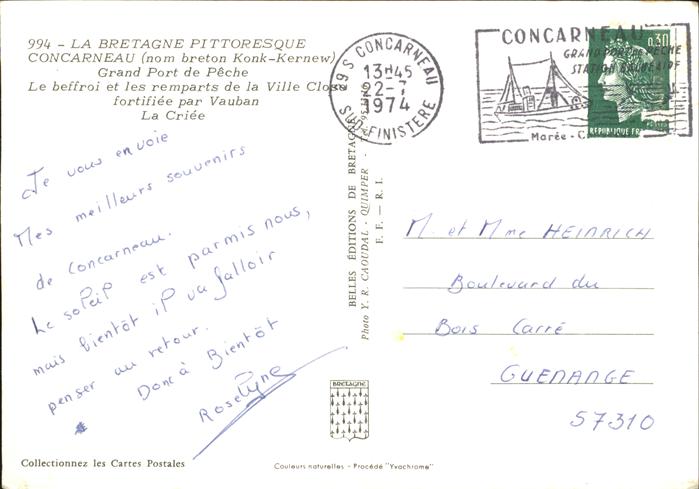 994 - LA BRETAGNE PITTORESQUE
CONCARNEAU (nom breton Konk-Kernew)
Grand Port de Pêche
Le beffroi et les remparts de la Ville Close
fortifiée par Vauban
La Criée
Je vous envoie
Mes meilleurs souvenirs
de Concarneau.
Le soleil est parmis nous,
mais bientôt il va falloir
penser au retour.
Donc à Bientôt
Roselyne
Collectionnez les Cartes Postales
29 S CONCARNEAU
13H45
22-7
1974
SUD-FINISTERE
CONCARNEAU
GRAND PORT DE PÊCHE
STATION BALNÉAIRE
Marée - C
0,30
REPUBLIQUE FR
BELLES ÉDITIONS DE BRETAGNE
Photo Y. R. CAOUDAL - QUIMPER -
F. F. - R. I.
M. et Mme HEINRICH
Boulevard du
Bois Carré
GUENANGE
57310
BRETAGNE
Couleurs naturelles - Procédé "Yvochrome"